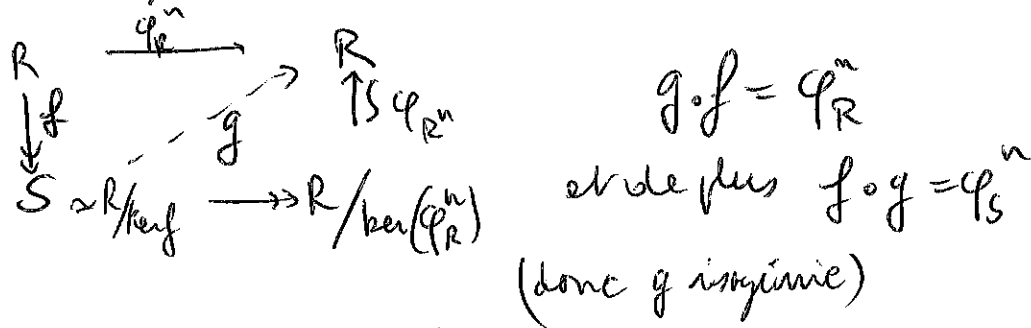 φ_R^n
R ⟶ R
↓ f g ↑ ∫ φ_{R^n}
S ≃ R/ker f ↠ R/ker(φ_R^n)
g∘f = φ_R^n
et de plus f∘g = φ_S^n
(donc g isogénie)